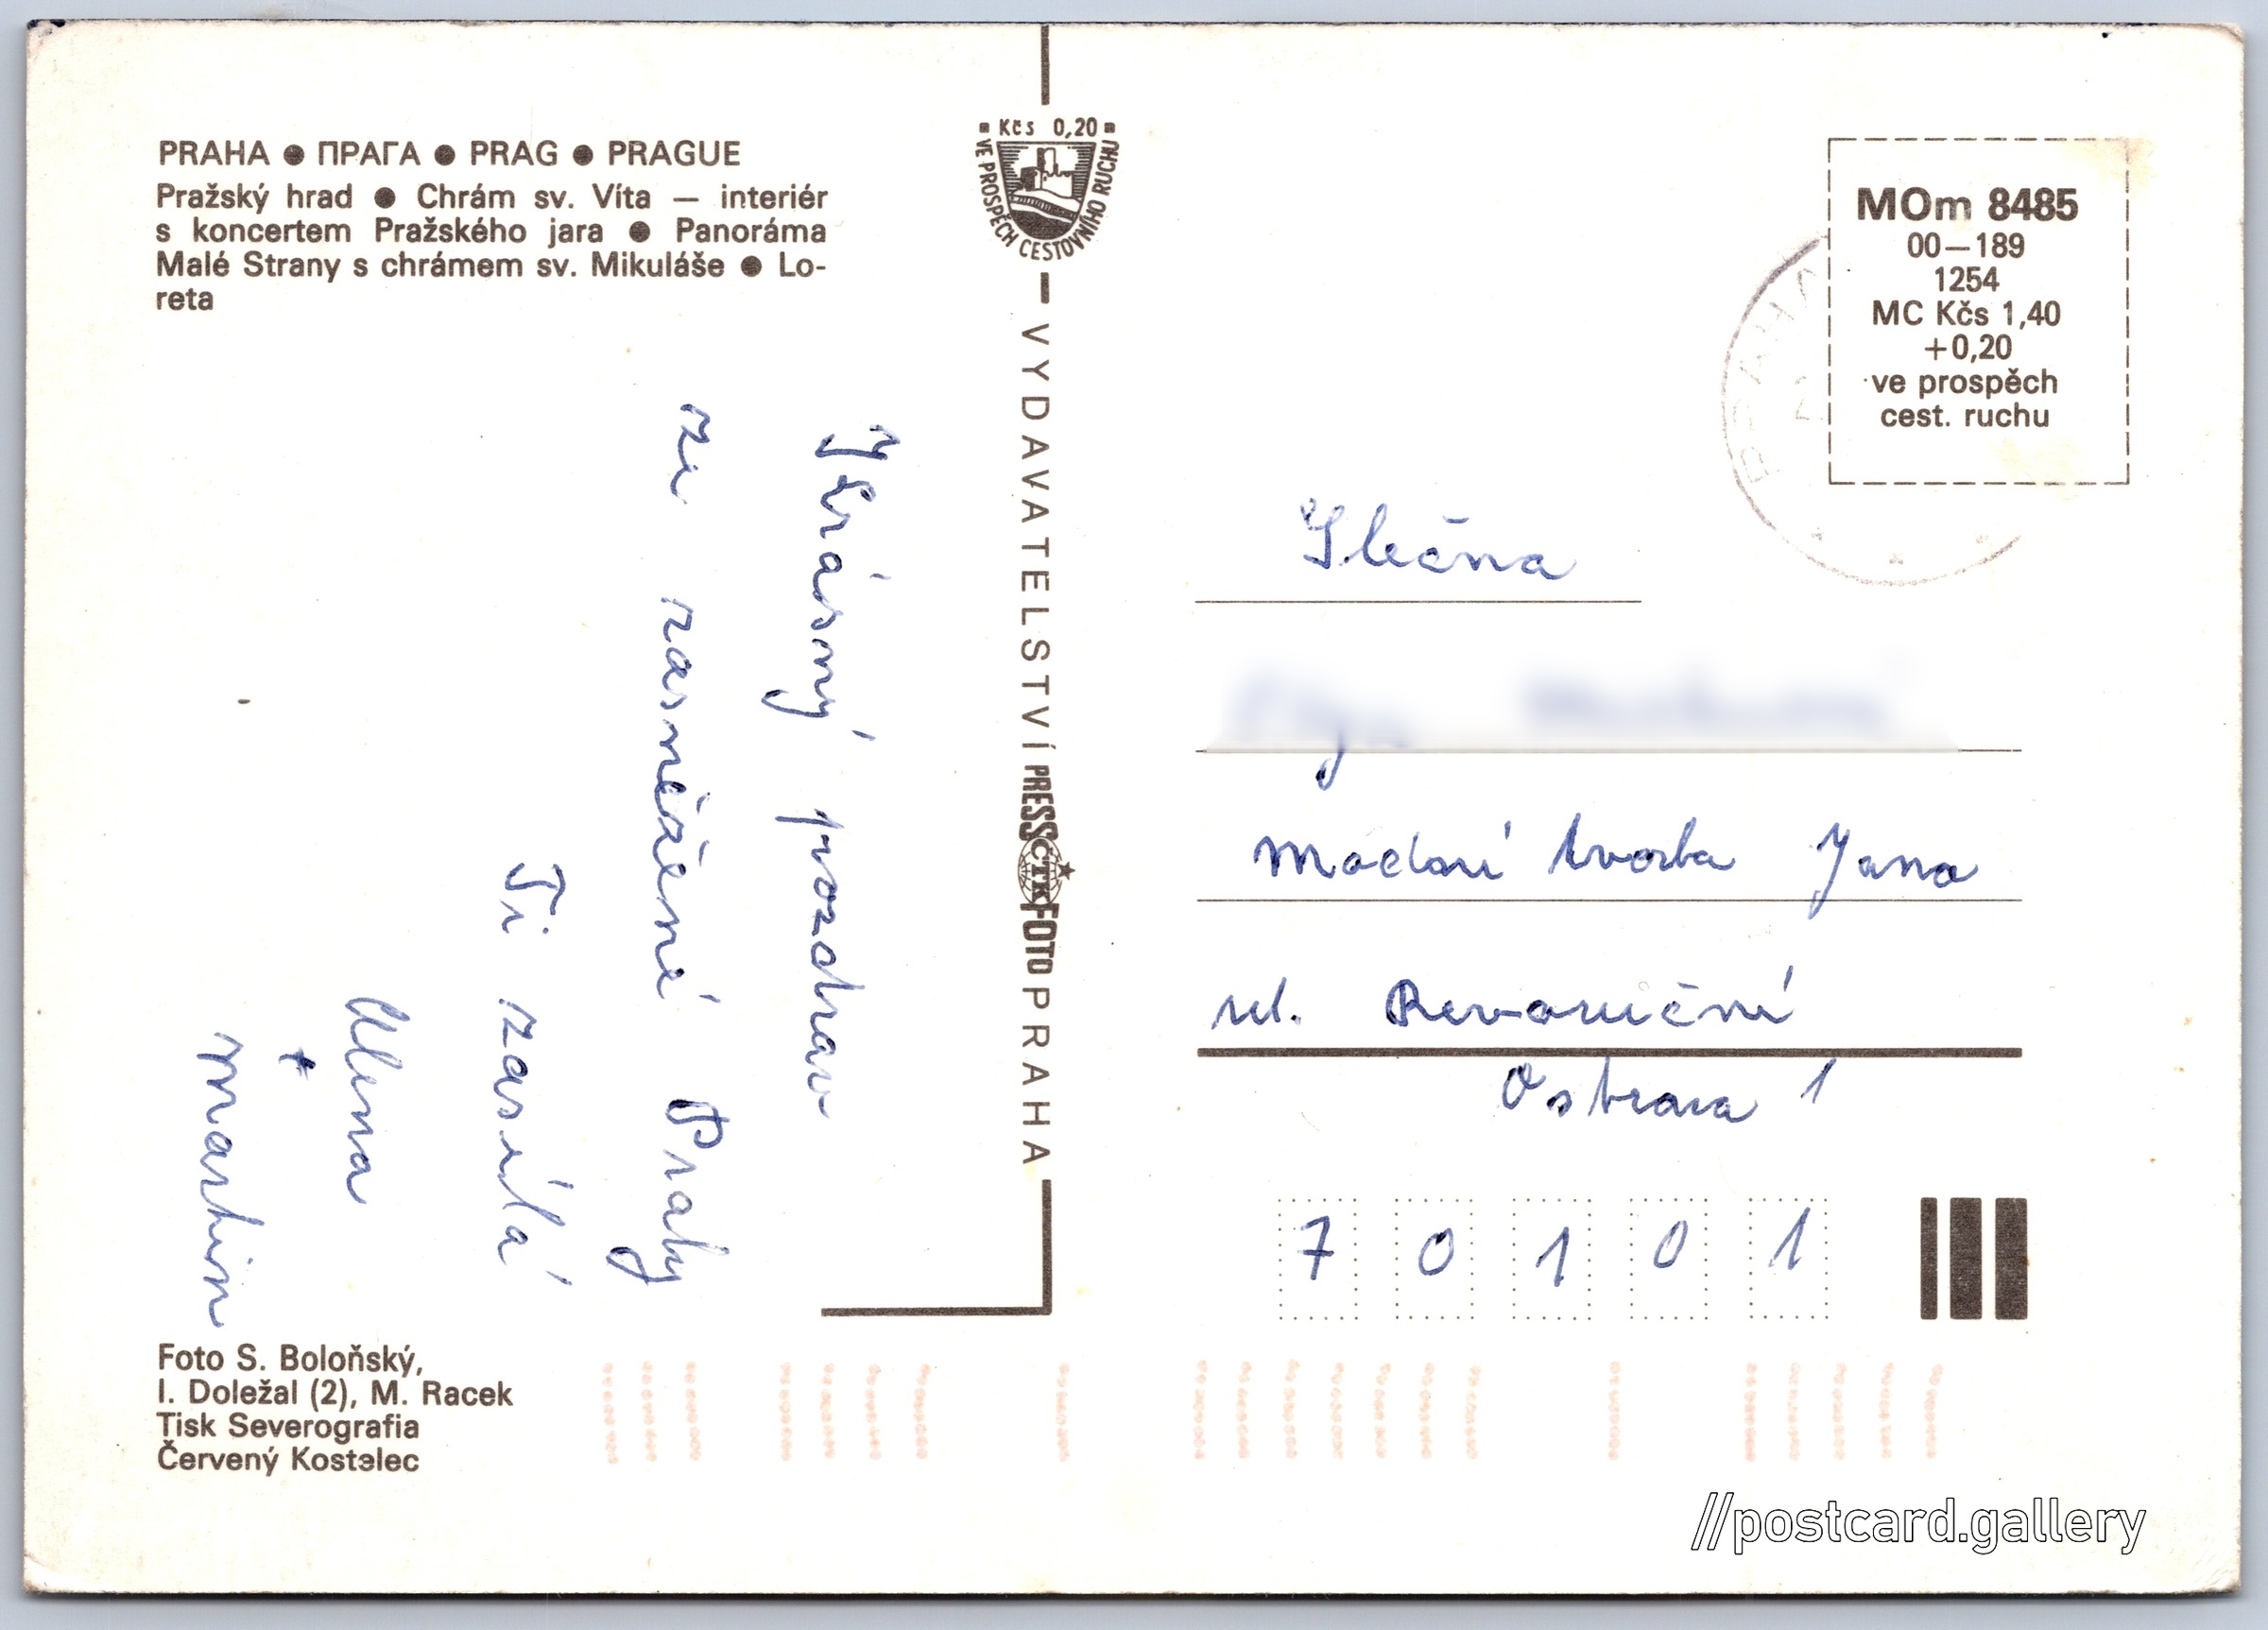 PRAHA ● ПРАГА ● PRAG ● PRAGUE
Pražský hrad ● Chrám sv. Víta — interiér
s koncertem Pražského jara ● Panoráma
Malé Strany s chrámem sv. Mikuláše ● Lo-
reta
Krásný pozdrav
ze zasněžené Prahy
Ti zasílá
Alena
+
Martin
Foto S. Boloňský,
I. Doležal (2), M. Racek
Tisk Severografia
Červený Kostelec
Kčs 0,20
VE PROSPĚCH CESTOVNÍHO RUCHU
VYDAVATELSTVÍ PRESSFOTO PRAHA
ČTK
MOm 8485
00—189
1254
MC Kčs 1,40
+0,20
ve prospěch
cest. ruchu
PRAHA
Slečna
Modní tvorba Jana
ul. Revoluční
Ostrava 1
7 0 1 0 1
//postcard.gallery